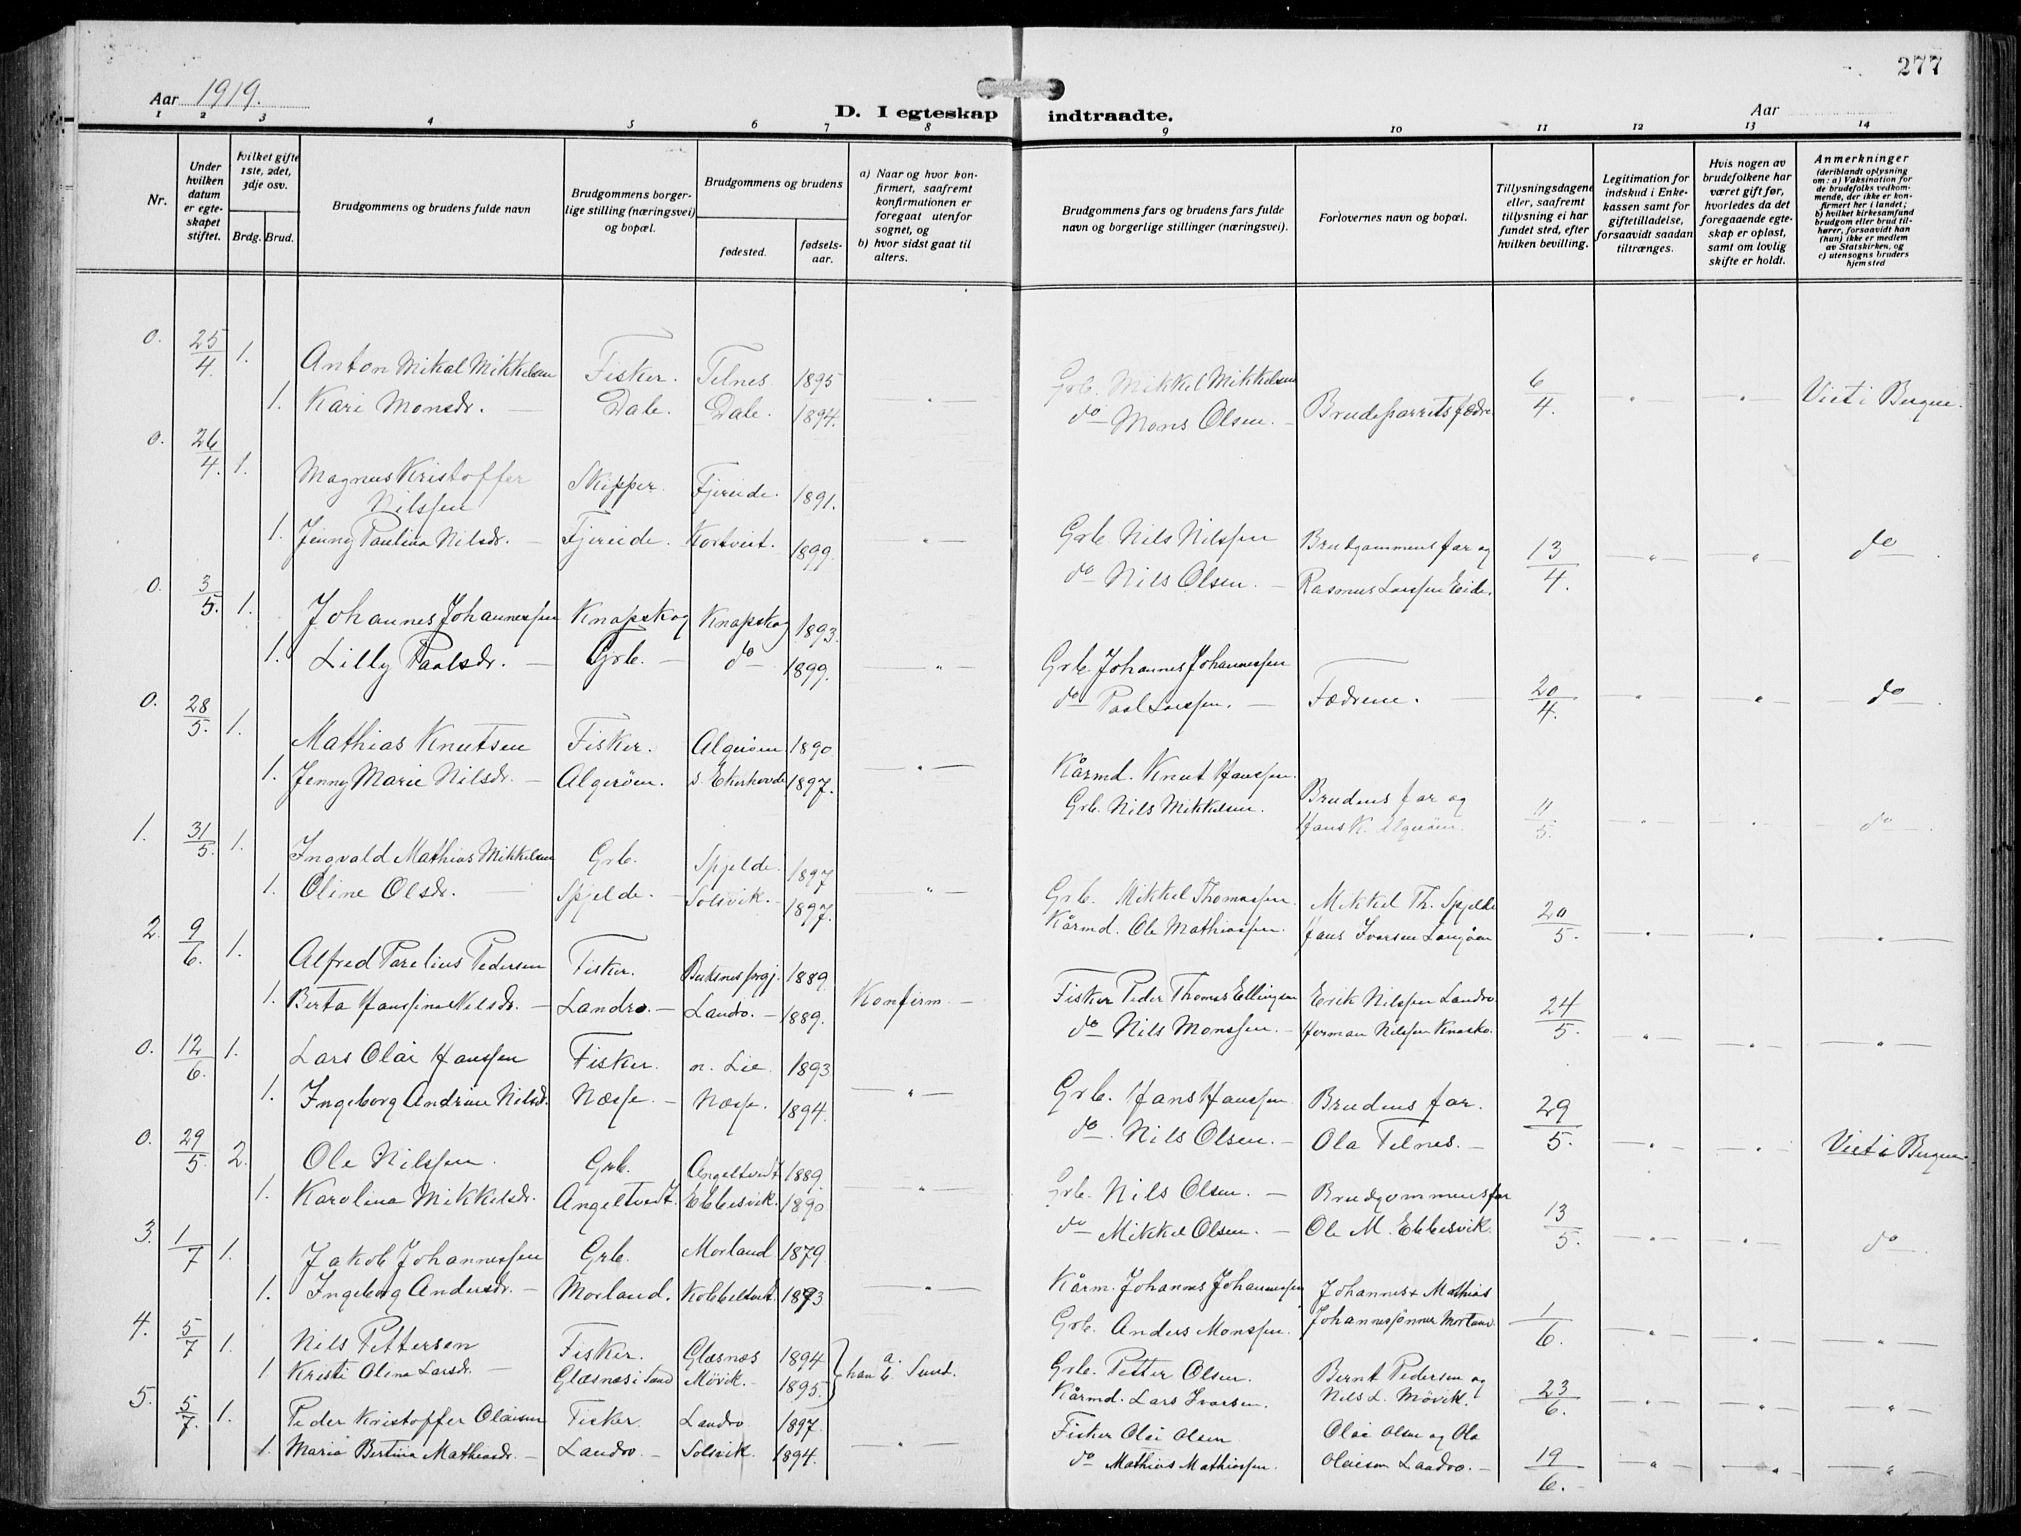 277
Aar 1919.
D. I egteskap indtraadte.
Aar
1 2 3 4 5 6 7 8 9 10 11 12 13 14
Nr.
Under hvilken datum er egteskapet stiftet.
hvilket gifte 1ste, 2det, 3dje osv.
Brdg. Brud.
Brudgommens og brudens fulde navn
Brudgommens borgerlige stilling (næringsvei) og bopæl.
Brudgommens og brudens
fødested.
fødselsaar.
a) Naar og hvor konfirmert, saafremt konfirmationen er foregaat utenfor sognet, og
b) hvor sidst gaat til alters.
Brudgommens fars og brudens fars fulde navn og borgerlige stillinger (næringsvei).
Forlovernes navn og bopæl.
Tillysningsdagene eller, saafremt tillysning ei har fundet sted, efter hvilken bevilling.
Legitimation for indskud i Enkekassen samt for giftetilladelse, forsaavidt saadan tiltrænges.
Hvis nogen av brudefolkene har været gift før, hvorledes da det foregaaende egteskap er opløst, samt om lovlig skifte er holdt.
Anmerkninger (deriblandt oplysning om: a) Vaksination for de brudefolks vedkommende, der ikke er konfirmert her i landet; b) hvilket kirkesamfund brudgom eller brud tilhører, forsaavidt han (hun) ikke er medlem av Statskirken, og c) utensogns bruders hjemsted
0. 25/4 1. Anton Mikal Mikkelsen Fisker. Telnes. 1895 Grb. Mikkel Mikkelsen 6/4 Viet i Bergen.
1. Kari Monsdr. — Dale. Dale. 1894. — " — do Mons Olsen. — Brudeparrets fædre " "
0. 26/4. 1. Magnus Kristoffer Nilssen Skipper. Fjereide. 1891. Grb. Nils Nilssen Brudgommens far og 13/4. do
1. Jenny Paulina Nilsdr. — Fjereide. Kortveit. 1899. — " — do Nils Olsen. — Rasmus Larssen Eide. — " — "
0. 3/5. 1. Johannes Johannessen Knapskog Knapskog 1893. Grb. Johannes Johannessen 20/4. do
1. Lilly Paalsdr. — Grb. — do 1899. " — do Paal Larssen. — Fædrene. — " — "
0. 28/5. 1. Mathias Knutsen Fisker. Algerøen. 1890 Kårmd. Knut Hanssen. Brudens far og 11/5. do
1. Jenny Marie Nilsdr. — Algerøen. s. Ekerhovde 1897. — " — Grb. Nils Mikkelsen. Hans K. Algerøen. " "
1. 31/5. 1. Ingvald Mathias Mikkelsen Grb. Spjelde. 1897 Grb. Mikkel Thomassen. Mikkel Th. Spjelde 20/5.
1. Oline Olsdr. — Spjelde. — Solsvik. — 1897. — " — Kårmd. Ole Mathiassen. Hans Ivarsen Langøen " " "
2. 9/6. 1. Alfred Parelius Pedersen Fisker. Buksnes prgj. 1889. Fisker Peder Thomas Ellingsen Erik Nilssen Landro 24/5.
1. Berta Hanssine Nilsdr. — Landro. — Landro. — 1889. Konfirm. — do Nils Monssen. — Herman Nilssen Knasko. " " "
0. 12/6. 1. Lars Olai Hanssen Fisker. n. Lie. 1893 Grb. Hans Hanssen Brudens far. 29/5. Viet i Bergen.
1. Ingeborg Andrine Nilsdr. Næsse. — Næsse. 1894. — " — do. Nils Olsen. — Ola Telnes. — " "
0. 29/5. 2. Ole Nilssen. Grb. Angeltvedt 1889. Grb. Nils Olsen. — Brudgommens far 13/5. do
1. Karolina Mikkelsdr. Angeltvedt. Ebbesvik. 1890 — " — do Mikkel Olsen. — Ole M. Ebbesvik. " "
3. 1/7 1. Jakob Johannessen Grb. Morland 1879 Kårm. Johannes Johannessen Johannes & Mathias 1/6.
1. Ingeborg Andersdr. — Morland. Kobbeltveit. 1893 " — Grb. Anders Monssen. Johannessønner Morland. — " " "
4. 5/7 1. Nils Pettersen Fisker. Glæsnæs 1894 Grb. Petter Olsen. Bernt Pedersen og 23/6.
1 Kristi Olina Larsdr. — Glæsnæs i Sund Møvik. — 1895. a. han b. Sund. Kårmd. Lars Ivarsen. Nils L. Møvik. " " "
5. 5/7. 1. Peder Kristoffer Olaisen Fisker. Landro 1897. Fisker Olai Olsen Olai Olsen og Ola 19/6.
1. Maria Bertina Mathiasdr. — Landro — Solsvik — 1894. " — do Mathias Mathiassen. Olaisen Landro. — " " "